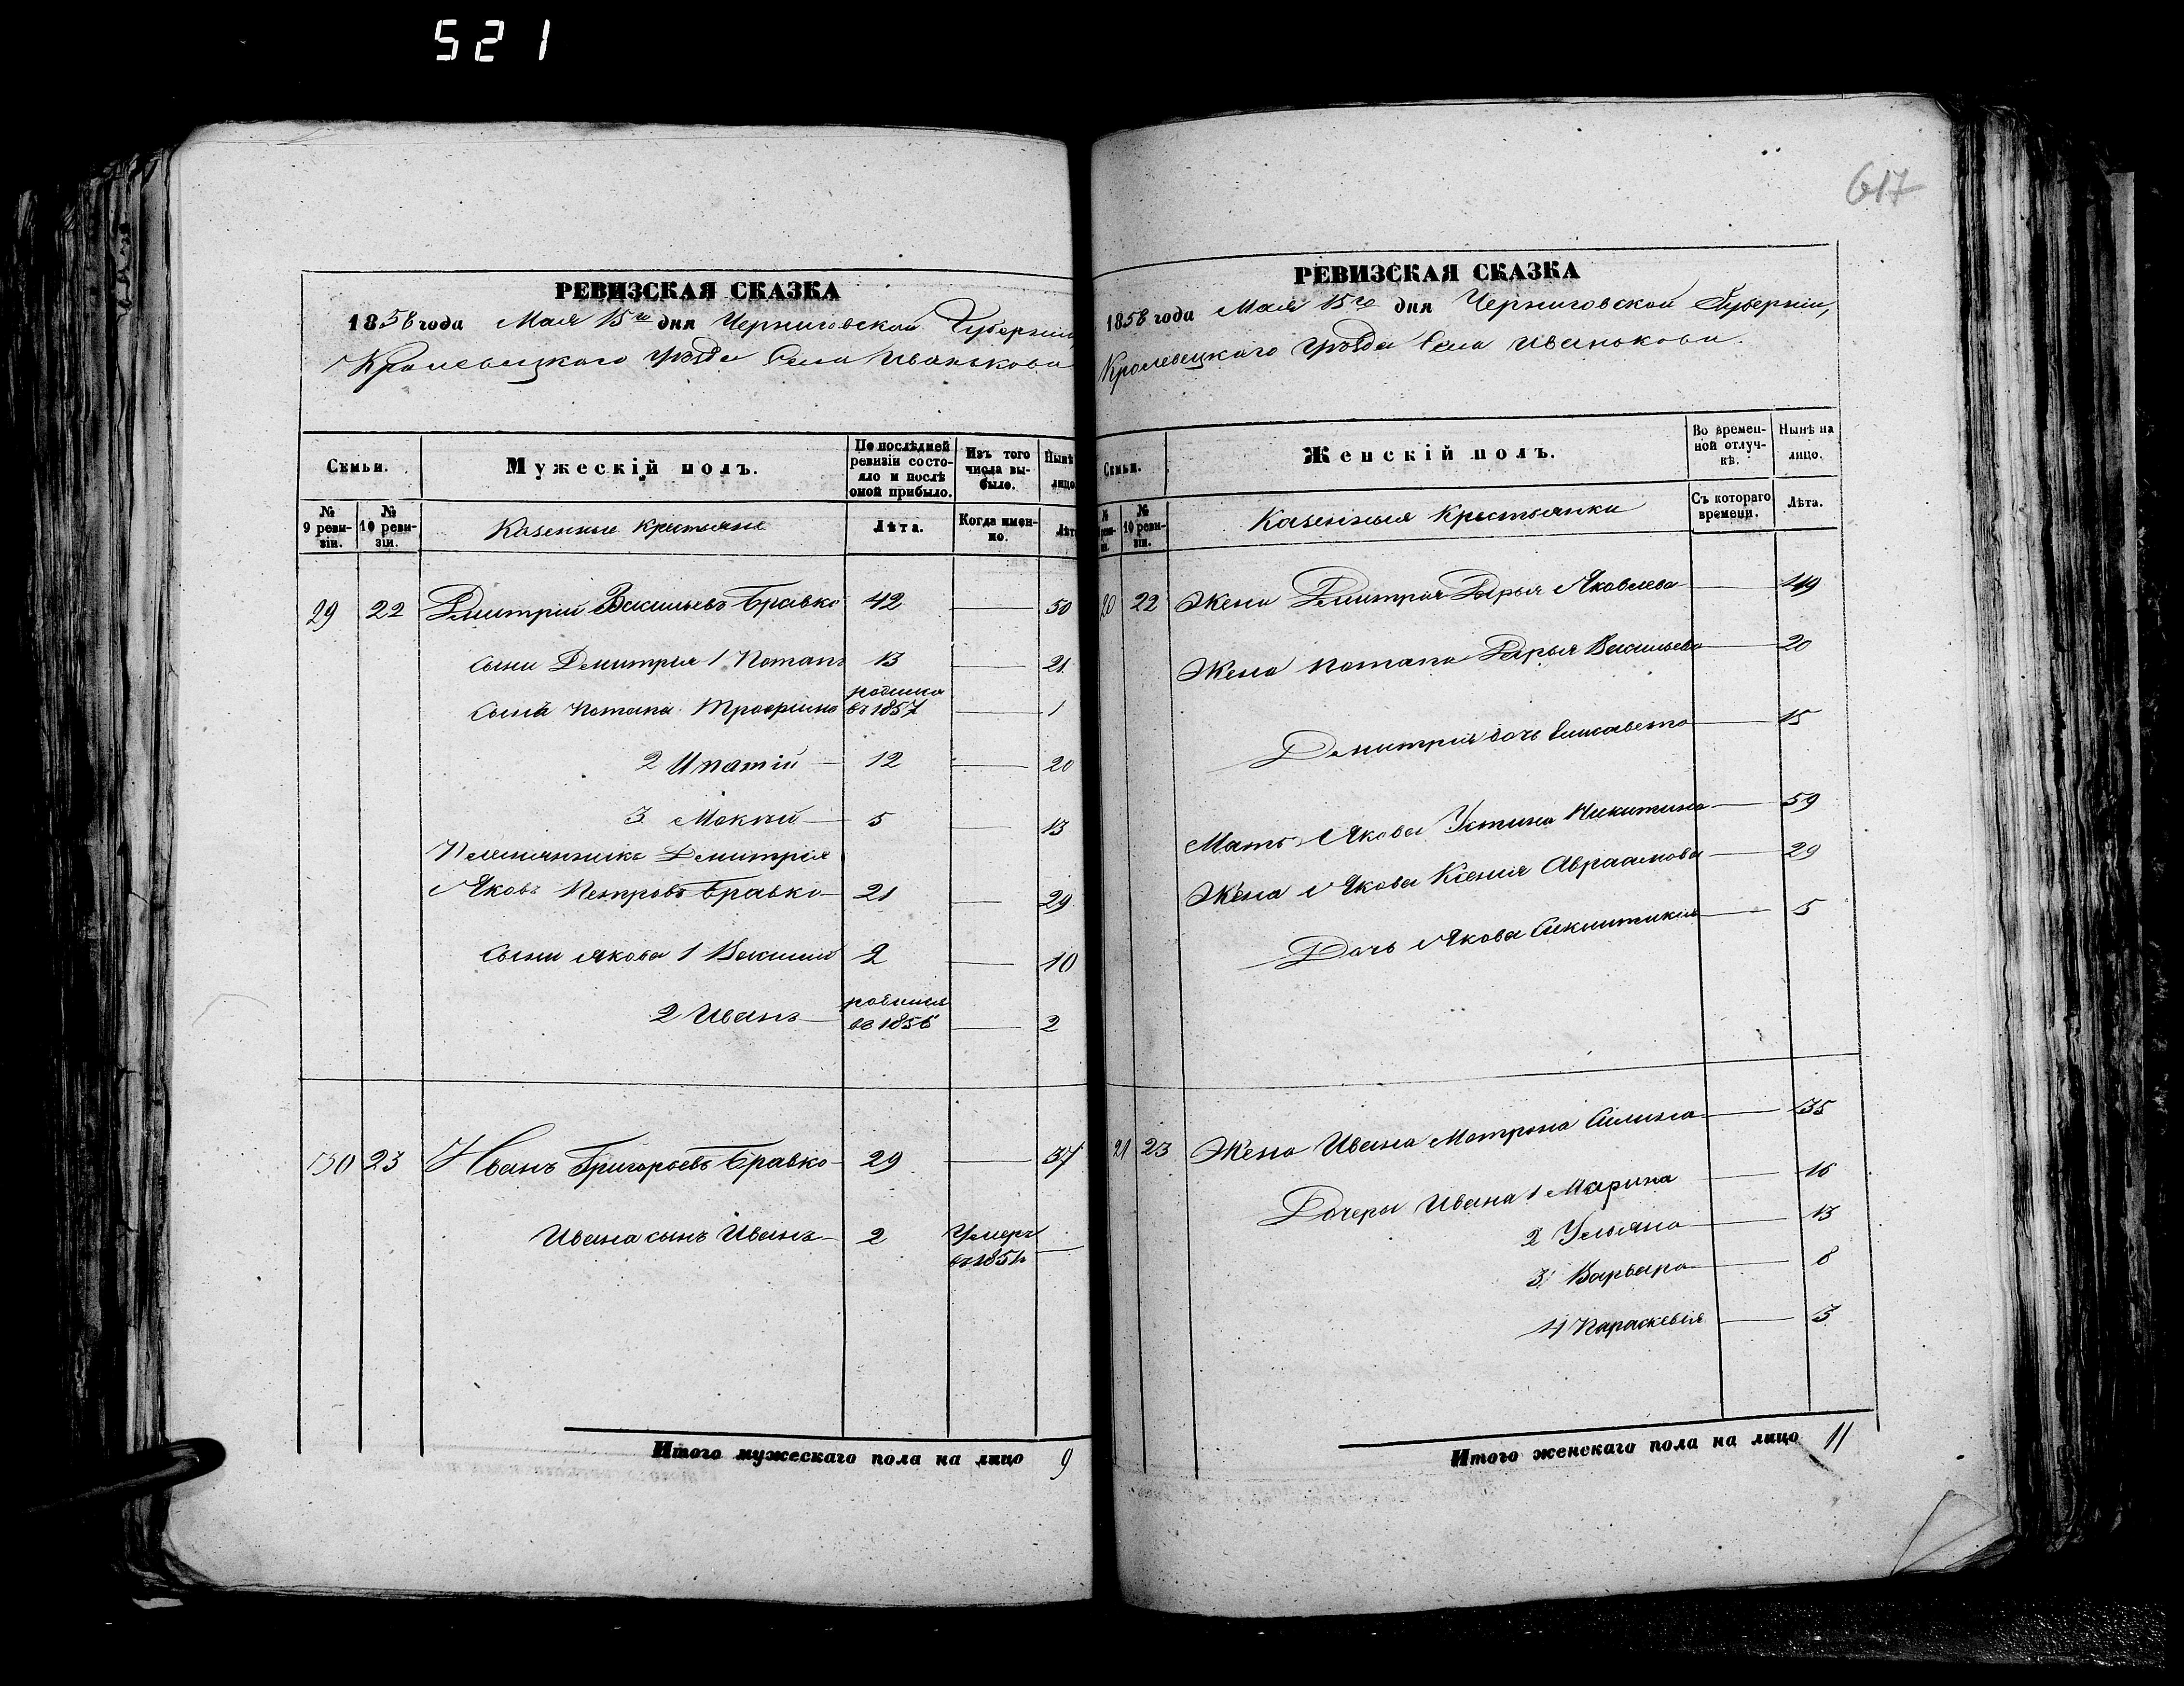 521
617
РЕВИЗСКАЯ СКАЗКА
1858 года Мая 15го дня Черниговской Губерніи
Кролевецкаго уѣзда Села Иванькова
Семьи. Мужескій полъ. По послѣдней ревизіи состояло и послѣ оной прибыло. Изъ того числа выбыло. Нынѣ лицо
№ 9 ревизіи. № 10 ревизіи. Казенные Крестьяне Лѣта. Когда именно. Лѣт
29 22 Дмитрій Васильевъ Бравко 42 — 50
Сыни Демитрия 1 Потапъ 13 — 21
Сынъ Потапа Трофимъ родился въ 1857 — 1
2 Ипатій — 12 — 20
3 Мокій — 5 — 13
Племянникъ Демитрия
Яковъ Петровъ Бравко — 21 — 29
Сыни Якова 1 Василий 2 — 10
2 Иванъ — родился въ 1856 — 2
30 23 Иванъ Григорьевъ Бравко — 29 — 37
Ивана сынъ Иванъ — 2 Умеръ въ 1851 —
Итого мужескаго пола на лицо 9
РЕВИЗСКАЯ СКАЗКА
1858 года Мая 15го дня Черниговской Губерніи,
Кролевецкаго уѣзда Села Иванькова.
Семьи. Женскій полъ. Во временной отлучкѣ. Нынѣ на лицо.
№ 10 ревизіи. Казенныя Крестьянки Съ котораго времени. Лѣта.
20 22 Жена Демитрия Дарья Яковлева — 49
Жена Потапа Дарья Васильева — 20
Демитрия дочь Елисавета — 15
Мать Якова Устина Никитина — 59
Жена Якова Ксения Авраамова — 29
Дочь Якова — 5
21 23 Жена Ивана Матрона Силина — 35
Дочеры Ивана 1 Марина — 16
2 Ульяна — 13
3 Варвара — 8
4 Параскевія — 3
Итого женскаго пола на лицо 11